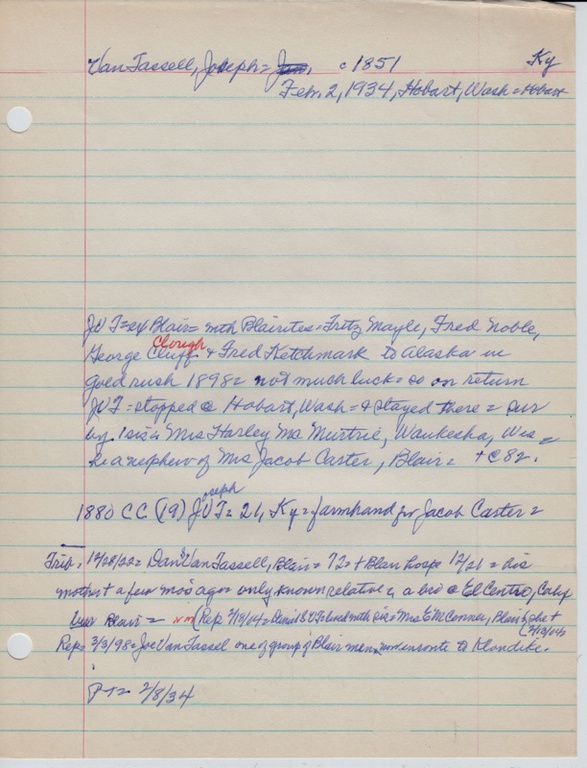 Van Tassell, Joseph = c1851 Ky
Feb. 2, 1934, Hobart, Wash = Hobart
JVT = ex Blair = with Blairites = Fritz Mayle, Fred Noble,
Clough
George Cluff & Fred Ketchmark to Alaska in
gold rush 1898 = not much luck = so on return
JVT = stopped @ Hobart, Wash = & stayed there = sur
by 1 sis = Mrs Harley Mc Murtrie, Waukesha, Wis =
he a nephew of Mrs Jacob Carter, Blair = + @ 82.
1880 CC (19) Joseph VT = 26, Ky = farmhand for Jacob Carter =
Trib. 12/28/22 = Dan'l Van Tassell, Blair = 72 = + Blair hosp 12/26 = his
mother + a few mos ago = only known relative is a bro @ El Centro, Calif
bur Blair = nm (Rep 2/19/04 = Daniel B VT lived with sis = Mrs E McConner, Blair = she +
Rep = 3/3/98 = Joe Van Tassel one of group of Blair men now enroute to Klondike.
PT = 2/8/34